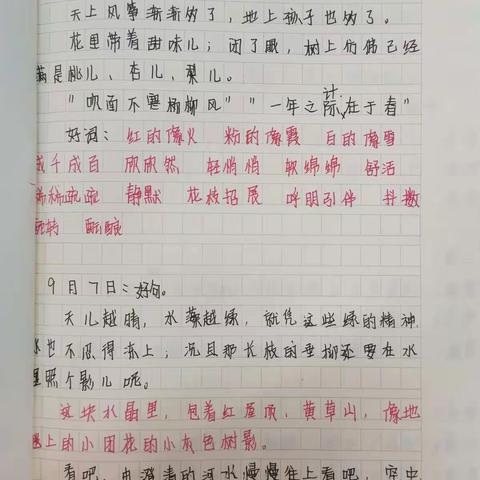 天上风筝渐渐多了，地上孩子也多了。
花里带着甜味儿；闭了眼，树上仿佛已经
满是桃儿、杏儿、梨儿。
"吹面不寒杨柳风""一年之计在于春"
好词：红的像火 粉的像霞 白的像雪
成千成百 欣欣然 轻悄悄 软绵绵 舒活
稀稀疏疏 静默 花枝招展 呼朋引伴 抖擞
宛转 酝酿
9月7日：好句。
天儿越晴，水藻越绿，就凭这些绿的精神，
水也不忍得冻上；况且那长枝的垂柳还要在水
里照个影儿呢。
这块水晶里，包着红屋顶，黄草山，像地
毯上的小团花的小灰色树影。
看吧，由澄清的河水慢慢往上看吧，空中